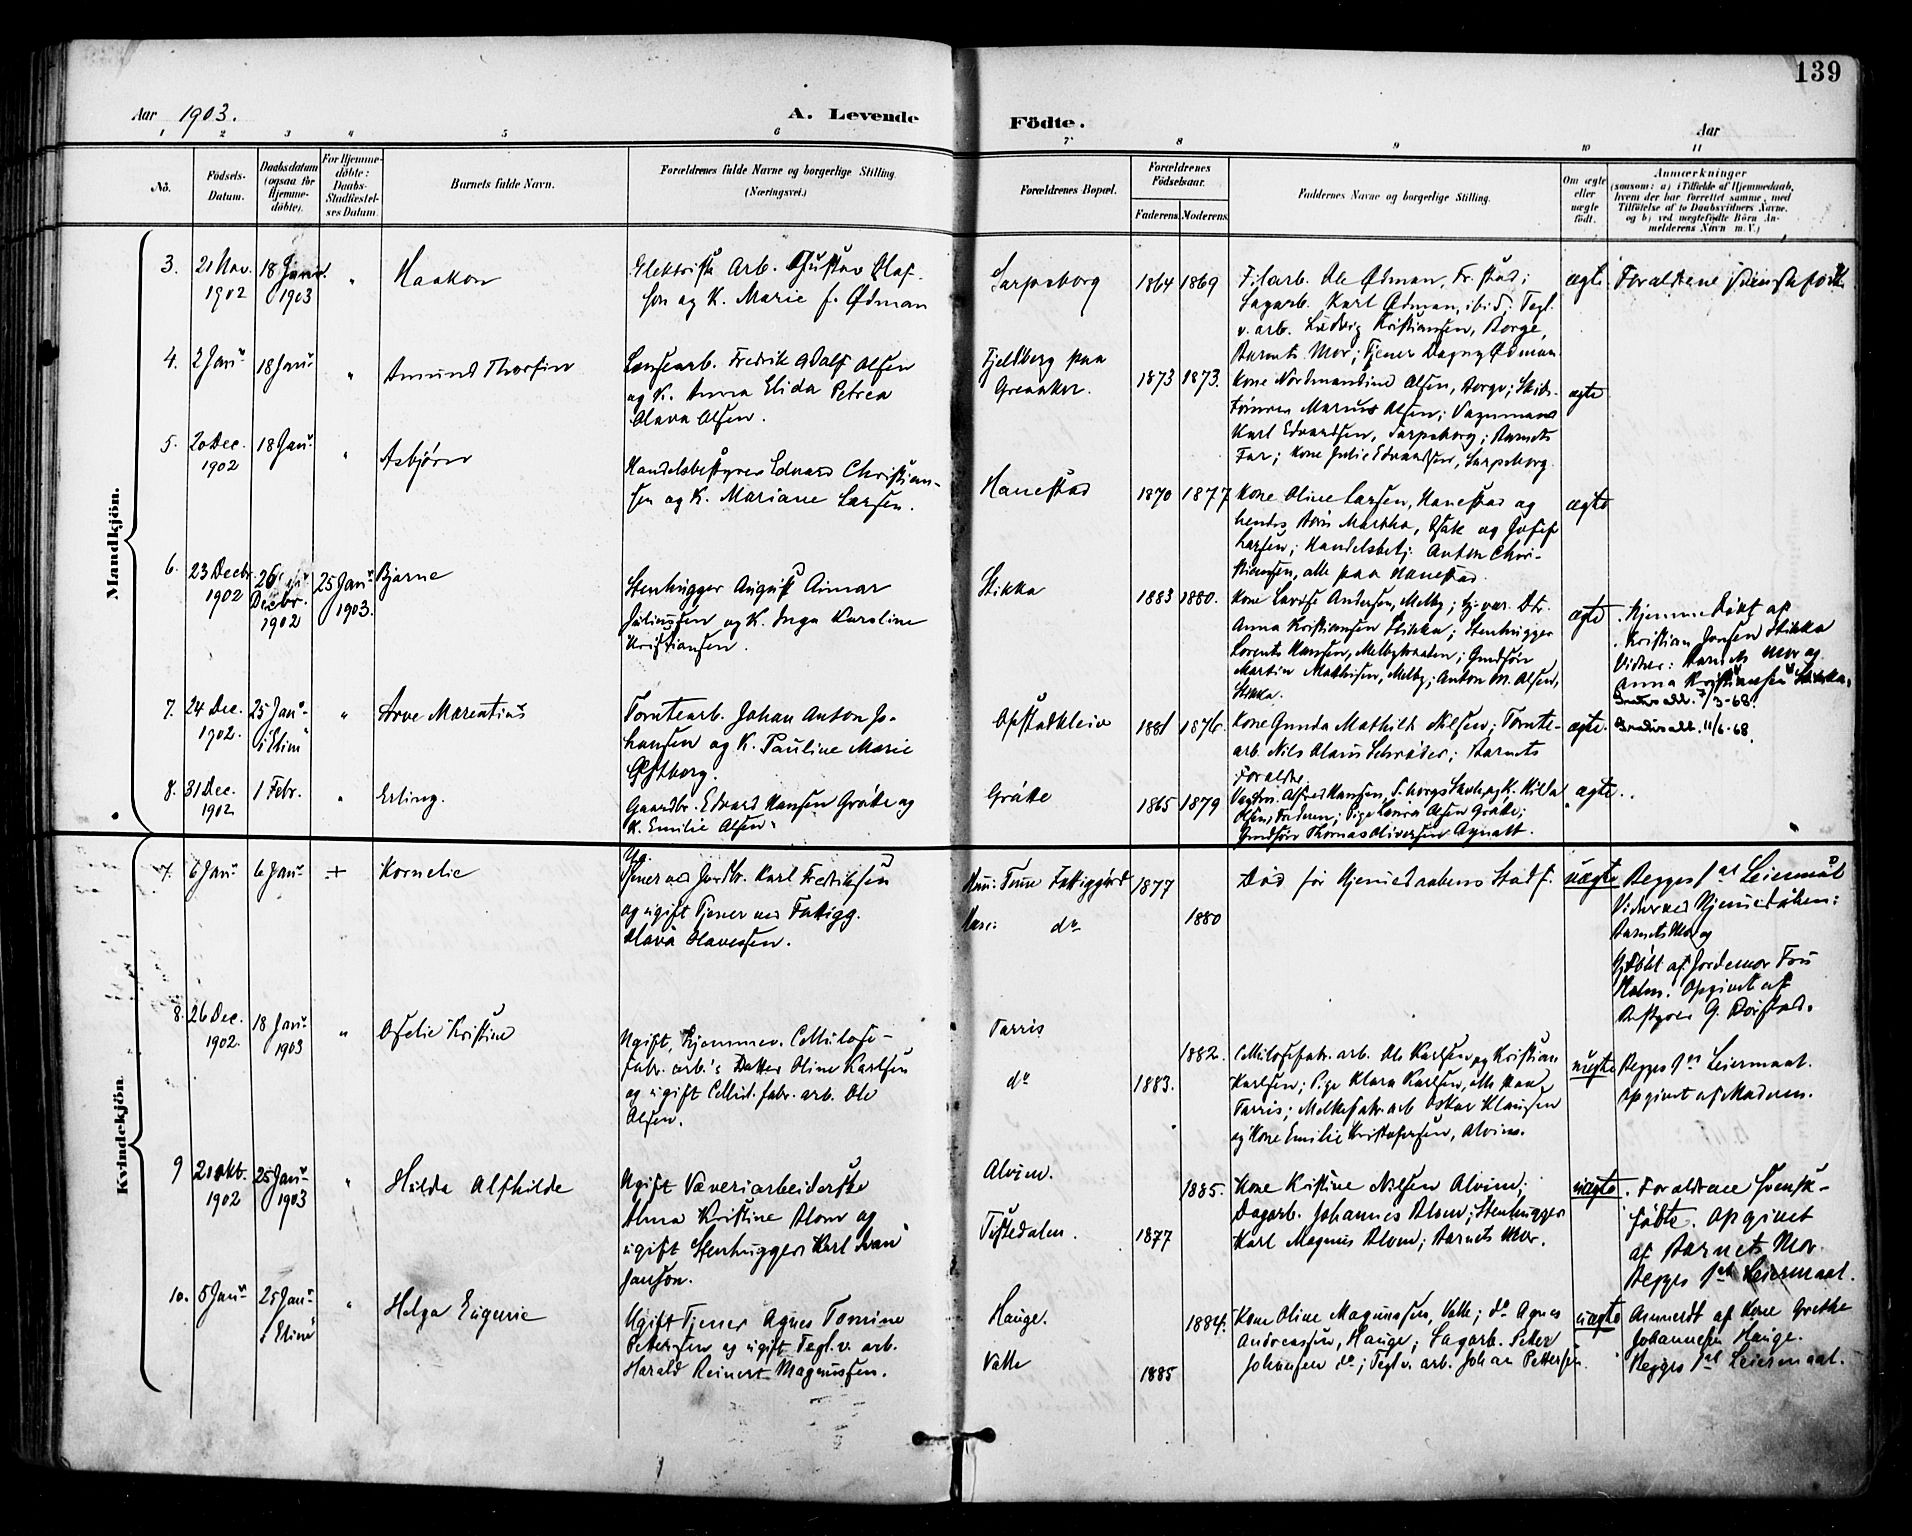 139
Aar 1903. A. Levende Födte. Aar
1 2 3 4 5 6 7 8 9 10 11
No. Födsels-Datum. Daabsdatum (ogsaa for Hjemme-døbte). For Hjemme-døbte: Daabs-Stadfæstel-ses Datum. Barnets fulde Navn. Forældrenes fulde Navne og borgerlige Stilling (Næringsvei.) Forældrenes Bopæl. Forældrenes Födselsaar. Faderens. Moderens. Faddernes Navne og borgerlige Stilling. Om ægte eller uægte født. Anmærkninger (saasom: a) i Tilfælde af Hjemmedaab, hvem der har forrettet samme, med Tilföielse af to Daabsvidners Navne, og b) ved uægtefödte Börn An-melderens Navn m. V.)
Mandkjön.
3. 21 Nov. 1902 18 Janr. 1903 " Haakon
Elektrisk Arb. Gustav Olaf-
son og K. Marie f. Ödman
Sarpsborg 1864 1869
Filarb. Ole Ödman, Fr.stad;
Sagarb. Karl Ödman, ibid; Tegl-
v. arb. Ludvig Kristiansen, Borge,
Barnets Mor; Tjener Dagny Ödman
ægte Forældrene svenskfödt.
4. 2 Janu 18 Janu " Amund Thorfin
Lensearb. Fredrik Adolf Olsen
og K. Anna Elida Petrea
Olava Olsen.
Fjeldberg paa
Greaaker. 1873 1873.
Kone Nordmandine Olsen, Borge; Skibs-
tömmer Marius Olsen; Vognmand
Karl Edvardsen, Sarpsborg; Barnets
Far; Kone Julie Edvardsen, Sarpsborg.
ægte
5. 20 Dec. 1902 18 Janu " Asbjörn
Handelsbestyrer Edvard Christian-
sen og K. Mariane Larsen.
Hanestad 1870 1877
Kone Oline Larsen, Hanestad og
hendes Börn Martha, og Josef
Larsen; Handelsbetj. Anton Chri-
stiansen, alle paa Hanestad.
ægte
6. 23 Decbr. 1902 26 Decbr. 1902 25 Janu 1903. Bjarne
Stenhugger August Aimar
Juliussen og K. Inga Karoline
Kristiansen.
Stikka 1883 1880.
Kone Lovise Andersen, Melby; hj.vær. Dtr.
Anna Kristiansen Stikka; Stenhugger
Lorents Hansen, Melbybraaten; Gmdsön
Martin Mathisen, Melby; Anton M. Olsen,
Stikka.
ægte
Hjemmedöbt af
Kristian Jonsen Stikka
Vidner: Barnets Mor og
Anna Kristiansen Stikka.
7/3-68.
7. 24 Dec. 1902. 25 Janu i "Elim" " Arve Marentius
Tomtearb. Johan Anton Jo-
hansen og K. Pauline Marie
Östborg.
Opstadkleiv 1881 1876.
Kone Gunda Mathilde Nilsen; Tomte-
arb. Nils Olaus Schröder; Barnets
Forældre
ægte. 11/6-68.
8. 31 Dec. 1902 1 Febr. " Erling.
Gaardbr. Edvard Hansen Gråtte og
K. Emilie Olsen.
Gråtte 1865 1879
Alfred Hansen, S.borg og K. Hilda
Olsen, Faderen; Pige Laura Olsen Gråtte;
Gmdsön Thomas Oliversen Agnalt.
ægte.
Kvindekjön.
7. 6 Janu 6 Janu + Kornelie
Ug.
Tjener ved Jordbr. Karl Fredriksen
og ugift Tjener ved Fattigg.
Olava Olavesen.
Han: Tune Fattiggård 1877
Hun: do 1880
Död för Hjemmedaabens Stadf.
uægte
Begges 1ste Leiermål
Vidner ved Hjemmedåben:
Barnets Mor og
Hj.döbt af Jordemor Fru
Holm. Opgivet af
Bestyrer G. Börstad.
8. 26 Dec. 1902. 18 Janu 1903 " Ofelie Kristine
Ugift, hjemmev. Cellulose-
fabr. arb.'s Datter Oline Karlsen
og ugift Cellul. fabr. arb. Ole
Olsen.
Tarris 1882.
do 1883.
Cellulosefabr. arb. Ole Karlsen og Kristian
Karlsen; Pige Klara Karlsen, alle paa
Tarris; Melkefabr. arb Oskar Klausen
og Kone Emilie Kristofersen, Alvim.
uægte
Begges 1ste Leiermaal.
Opgivet af Moderen.
9 21 Okt. 1902 25 Janu 1903 " Hilda Alfhilde
Ugift Væveriarbeiderske
Alma Kristine Blom og
ugift Stenhugger Karl Ivar
Janson.
Alvim. 1885.
Tistedalen. 1877
Kone Kristine Nilsen Alvim;
Dagarb. Johannes Blom; Stenhugger
Karl Magnus Blom; Barnets Mor.
uægte.
Forældrene svensk-
födte. Opgivet
af Barnets Mor.
Begges 1ste Leiermaal.
10. 5 Janu 25 Janu i "Elim" " Helga Eugenie
Ugift Tjener Agnes Tomine
Pettersen og ugift Tegl.v. arb.
Harald Reinert Magnussen.
Hauge. 1884.
Valle 1885
Kone Oline Magnussen, Valle; do Agnes
Andreassen, Hauge; Sagarb. Petter
Johansen do; Teglv. arb. Johan Pettersen.
uægte
Anmeldt af Kone Grethe
Johannesen Hauge.
Begges 1ste Leiermaal.